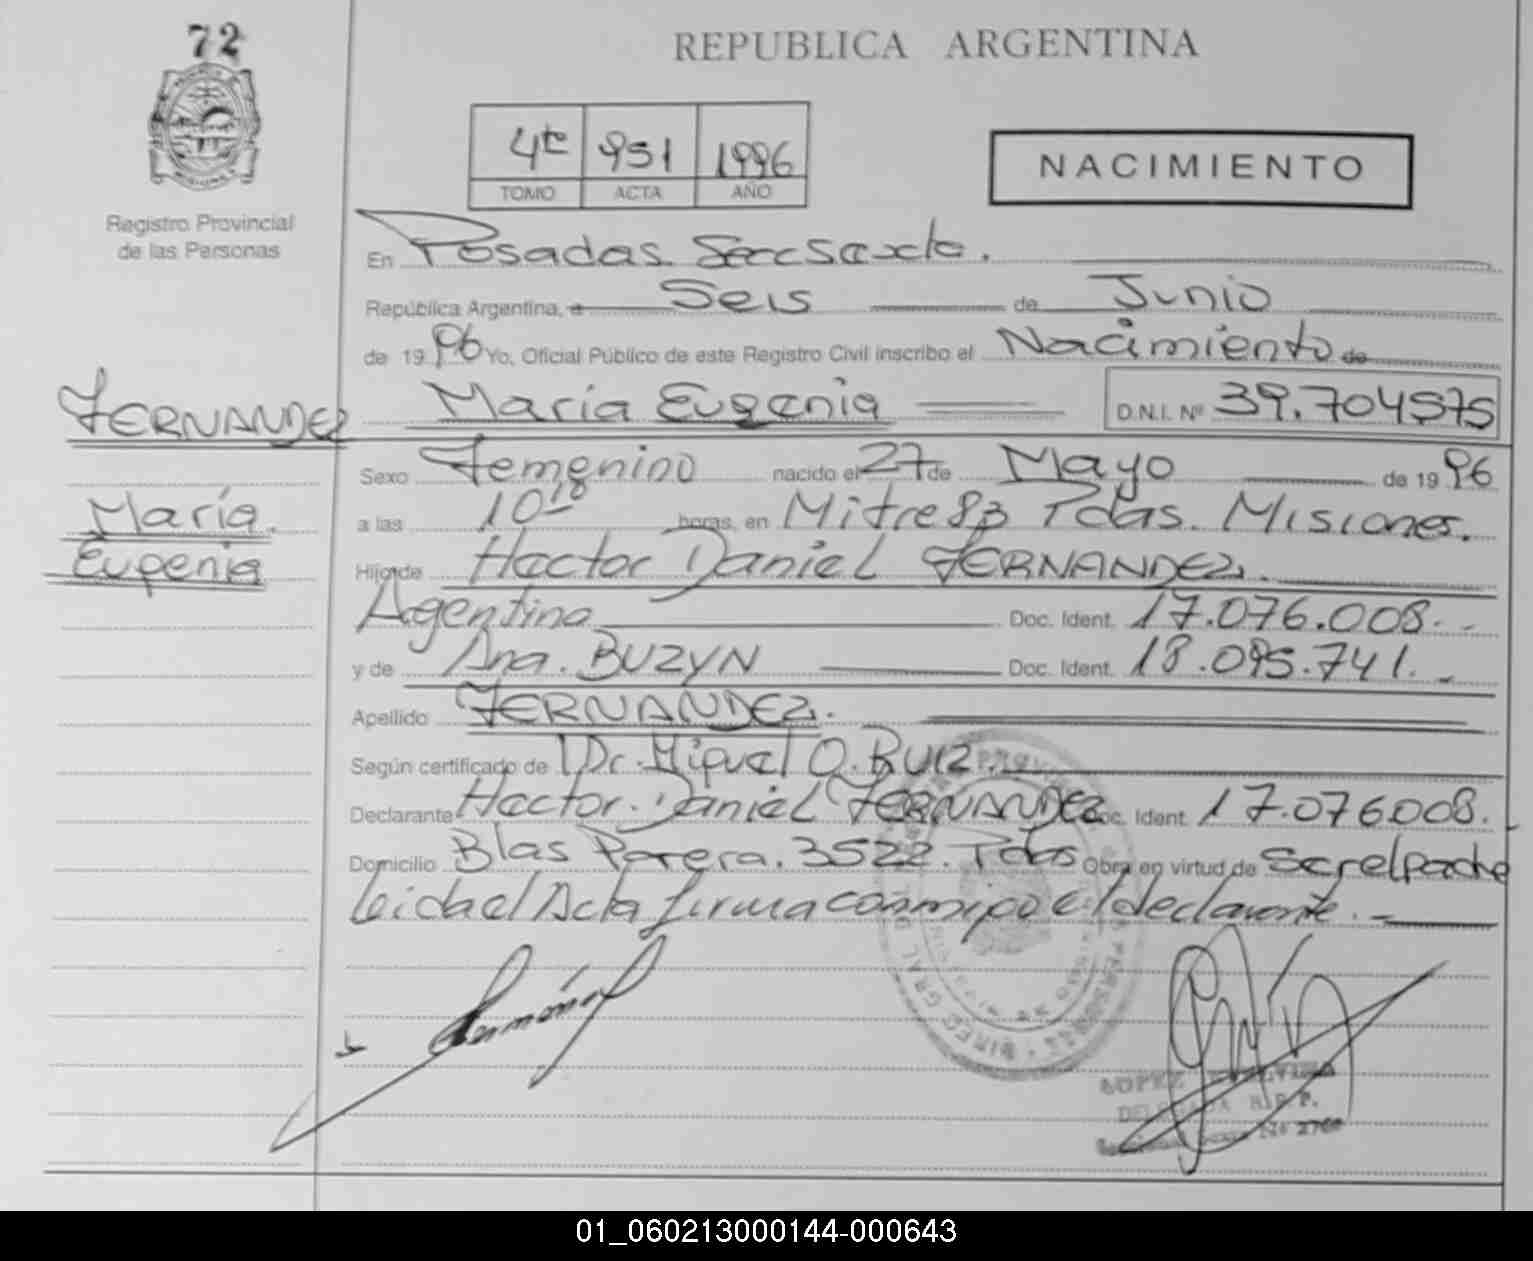 72
REPUBLICA ARGENTINA
4to 951 1996
TOMO ACTA AÑO
NACIMIENTO
Registro Provincial
de las Personas
En Posadas. Secc sexta.
República Argentina, a Seis de Junio
de 1996 Yo, Oficial Público de este Registro Civil inscribo el Nacimiento de
FERNANDEZ María Eugenia D.N.I. Nº 39.704575
Sexo Femenino nacido el 27 de Mayo de 1996
María a las 10 10 horas, en Mitre 83 Pdas. Misiones.
Eugenia Hijo de Hector Daniel FERNANDEZ.
Agentino Doc. Ident. 17.076.008.-
y de Ana. BUZYN Doc. Ident. 18.095.741.-
Apellido FERNANDEZ.
Según certificado de Dr. Miguel O. RUIZ.
Declarante Hector. Daniel FERNANDEZ Doc. Ident. 17.076008.
Domicilio Blas Parera. 3522. Pdas Obra en virtud de
leida el Acta firma conmigo el declarante.-
LOPEZ
DELEGADA R.P.P.
01_060213000144-000643